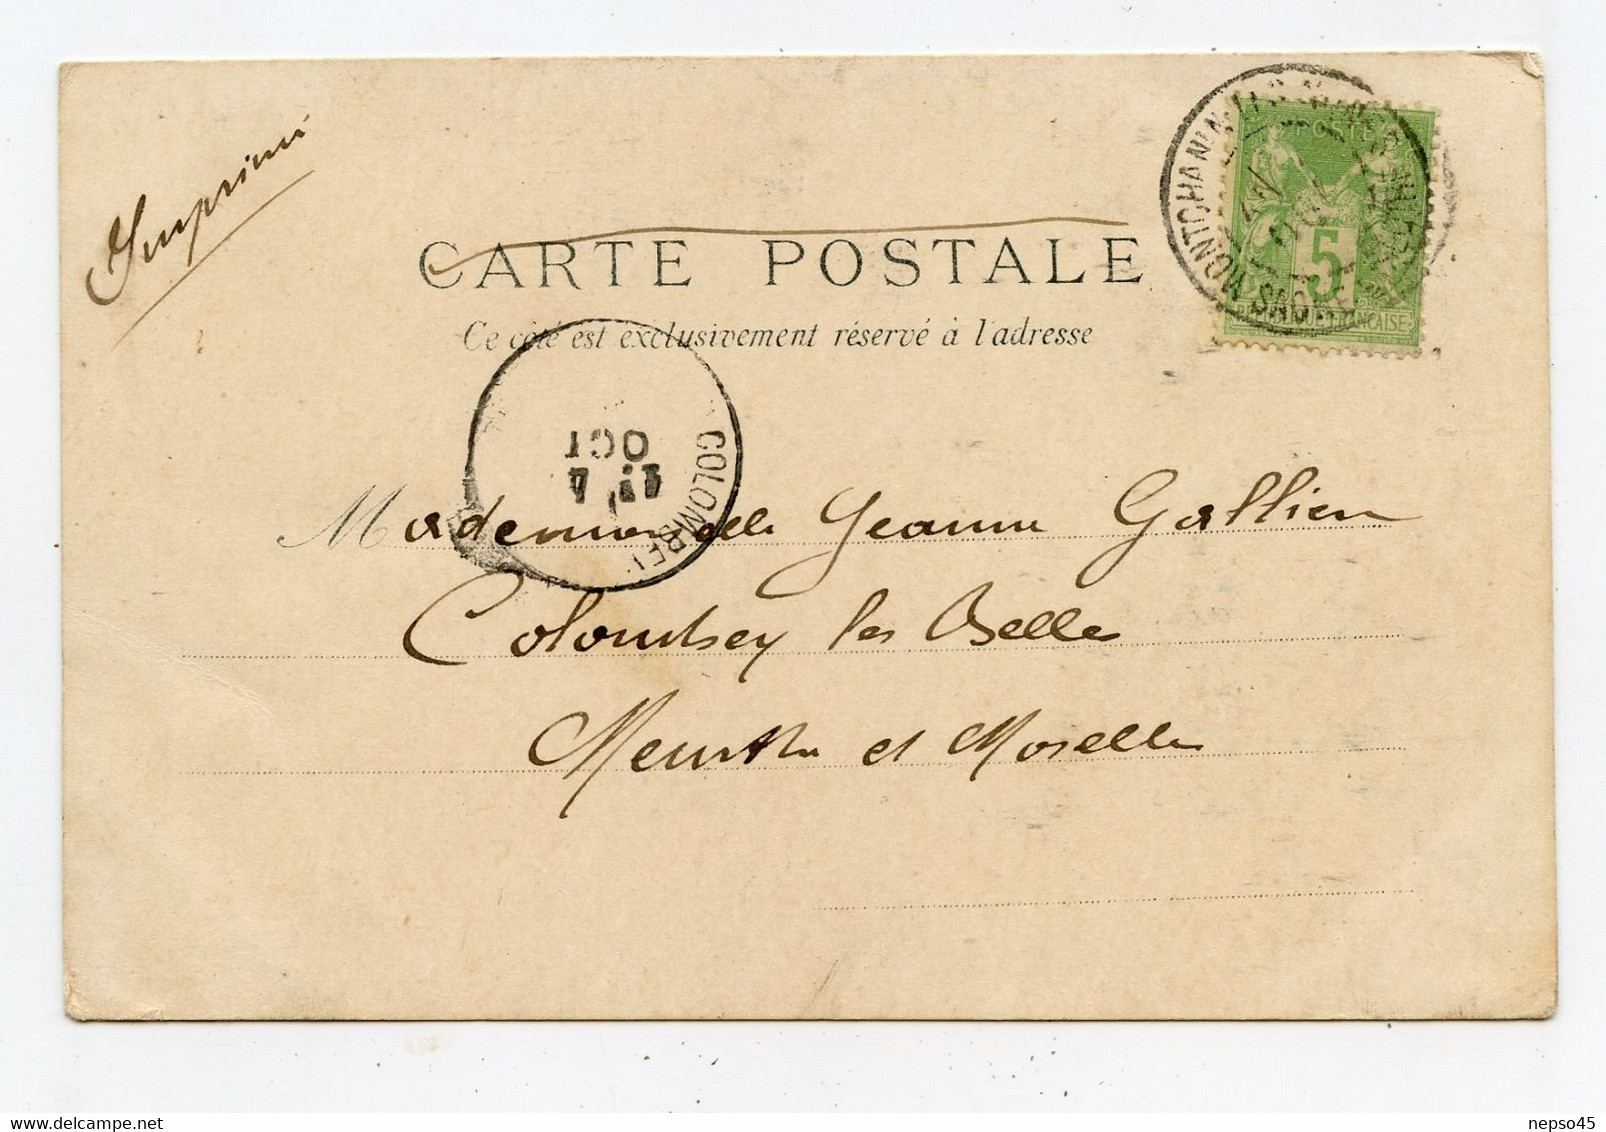 Imprimé
CARTE POSTALE
Ce côté est exclusivement réservé à l'adresse
POSTE
5
REPUBLIQUE FRANÇAISE
MONTCHANIN LES MINES
SAONE
COLOMBEY
OCT
Mademoiselle Jeanne Gallien
Colombey les Belles
Meurthe et Moselle
delcampe.net
nepso45